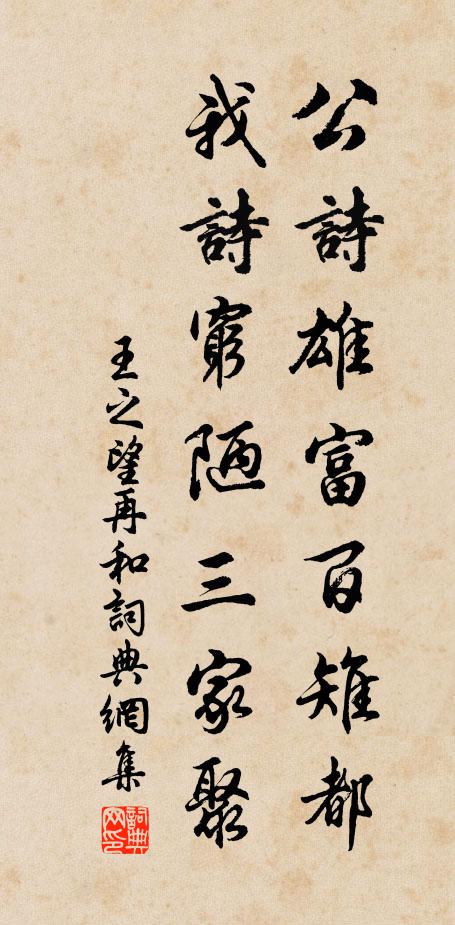 公詩雄富百雉都
我詩窮陋三家聚
王之望再和詞典網集
詞典網印